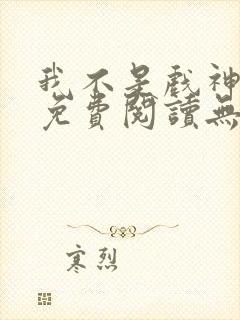 我不是戲神
免費閱讀無
寒烈